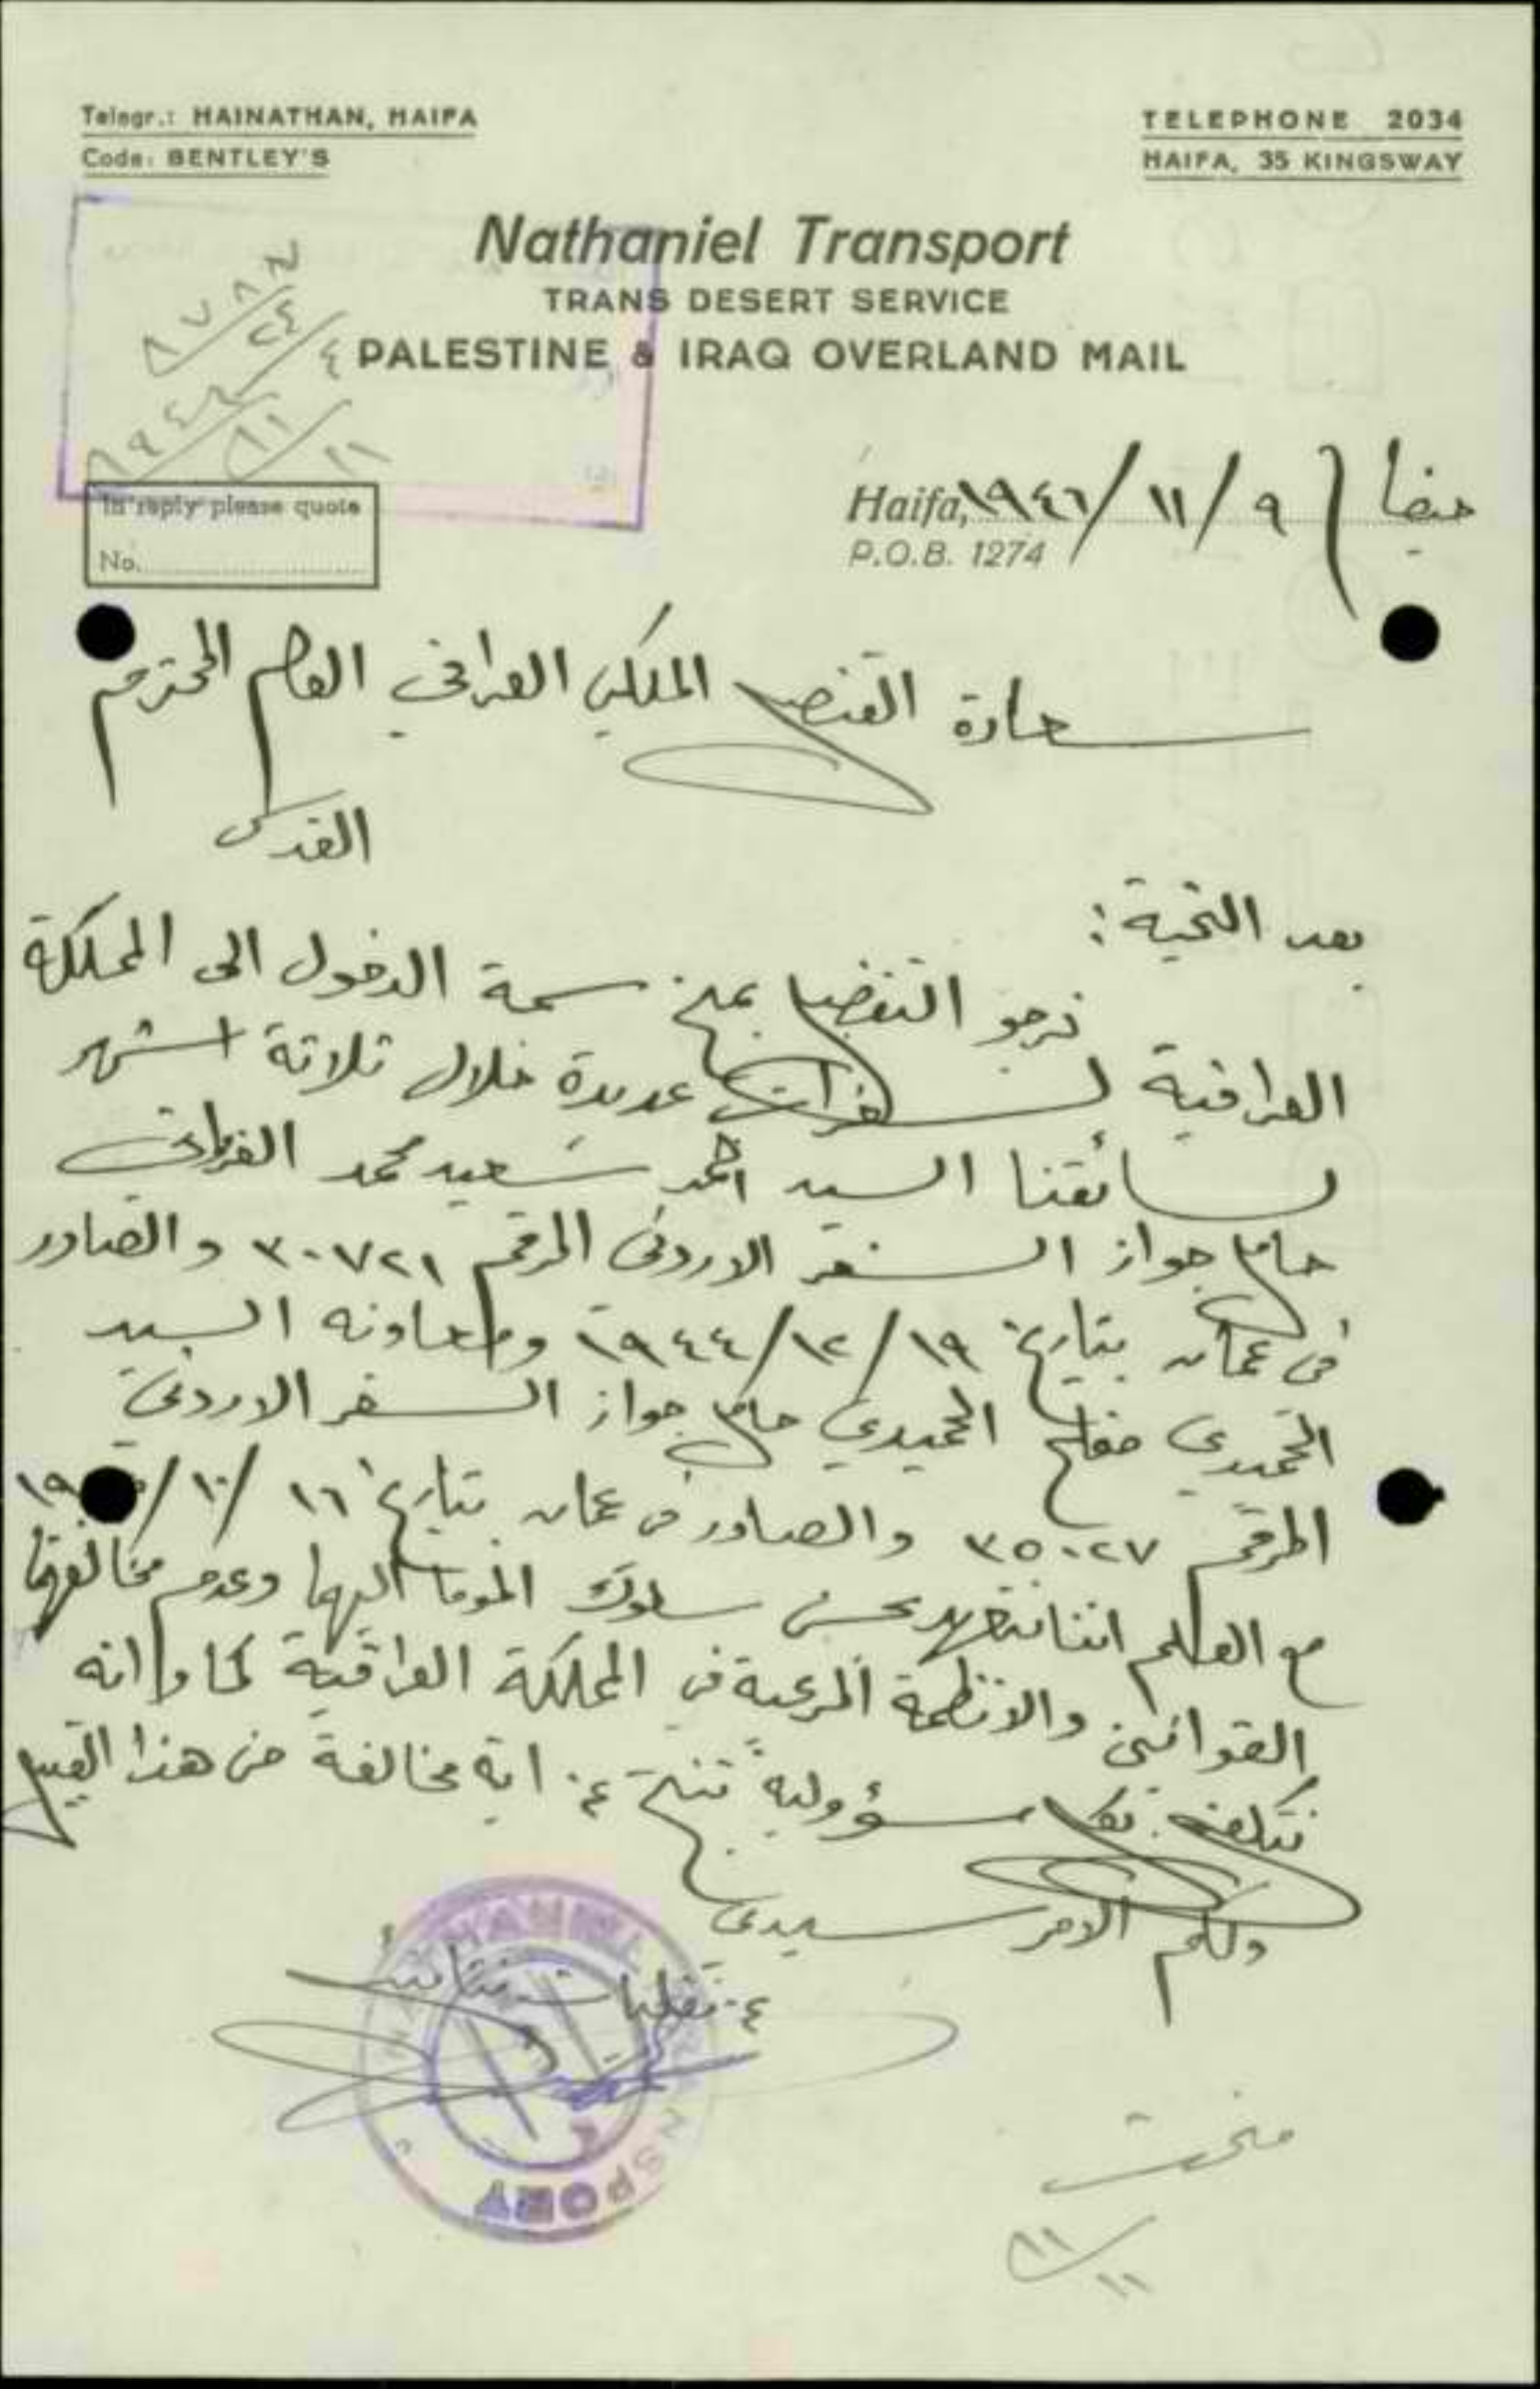 Telegr.: HAINATHAN, HAIFA
Code: BENTLEY'S
TELEPHONE 2034
HAIFA, 35 KINGSWAY
Nathaniel Transport
TRANS DESERT SERVICE
PALESTINE & IRAQ OVERLAND MAIL
In reply please quote
No.
Haifa, حيفا ٩/١١/١٩٤٦
P.O.B. 1274
سعادة القنصل الملكي العراقي العام المحترم
القدس
بعد التحية:
نرجو التفضل بمنح سمة الدخول الى المملكة
العراقية لسفرات عديدة خلال ثلاثة اشهر
لسائقنا السيد احمد سعيد محمد
حامل جواز السفر الاردني المرقم ٣٠٧٢١ والصادر
في عمان بتاريخ ١٩/١٢/١٩٤٤ ومعاونه السيد
الحميدي مفلح الحميدي حامل جواز السفر الاردني
المرقم ٣٥٠٢٧ والصادر في عمان بتاريخ ١٦/١٠/١٩
مع العلم اننا نتعهد بحسن سلوك الموما اليهما وعدم مخالفتهما
القوانين والانظمة المرعية في المملكة العراقية كما وانه
نتكلف بكل مسؤولية تنتج عن اية مخالفة من هذا القبيل
ولكم الامر سيدي
ع. نقليات نتانيل
TRANSPORT
منحت
١١/١١